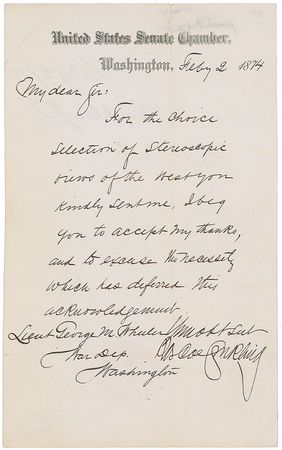 United States Senate Chamber,
Washington, Feby 2 1874
My dear Sir:
For the choice
selection of Stereoscopic
views of the West you
kindly sent me, I beg
you to accept my thanks,
and to excuse the necessity
which has deferred this
acknowledgement
Lieut George M. Wheeler
War Dep.
Washington
Roscoe Conkling